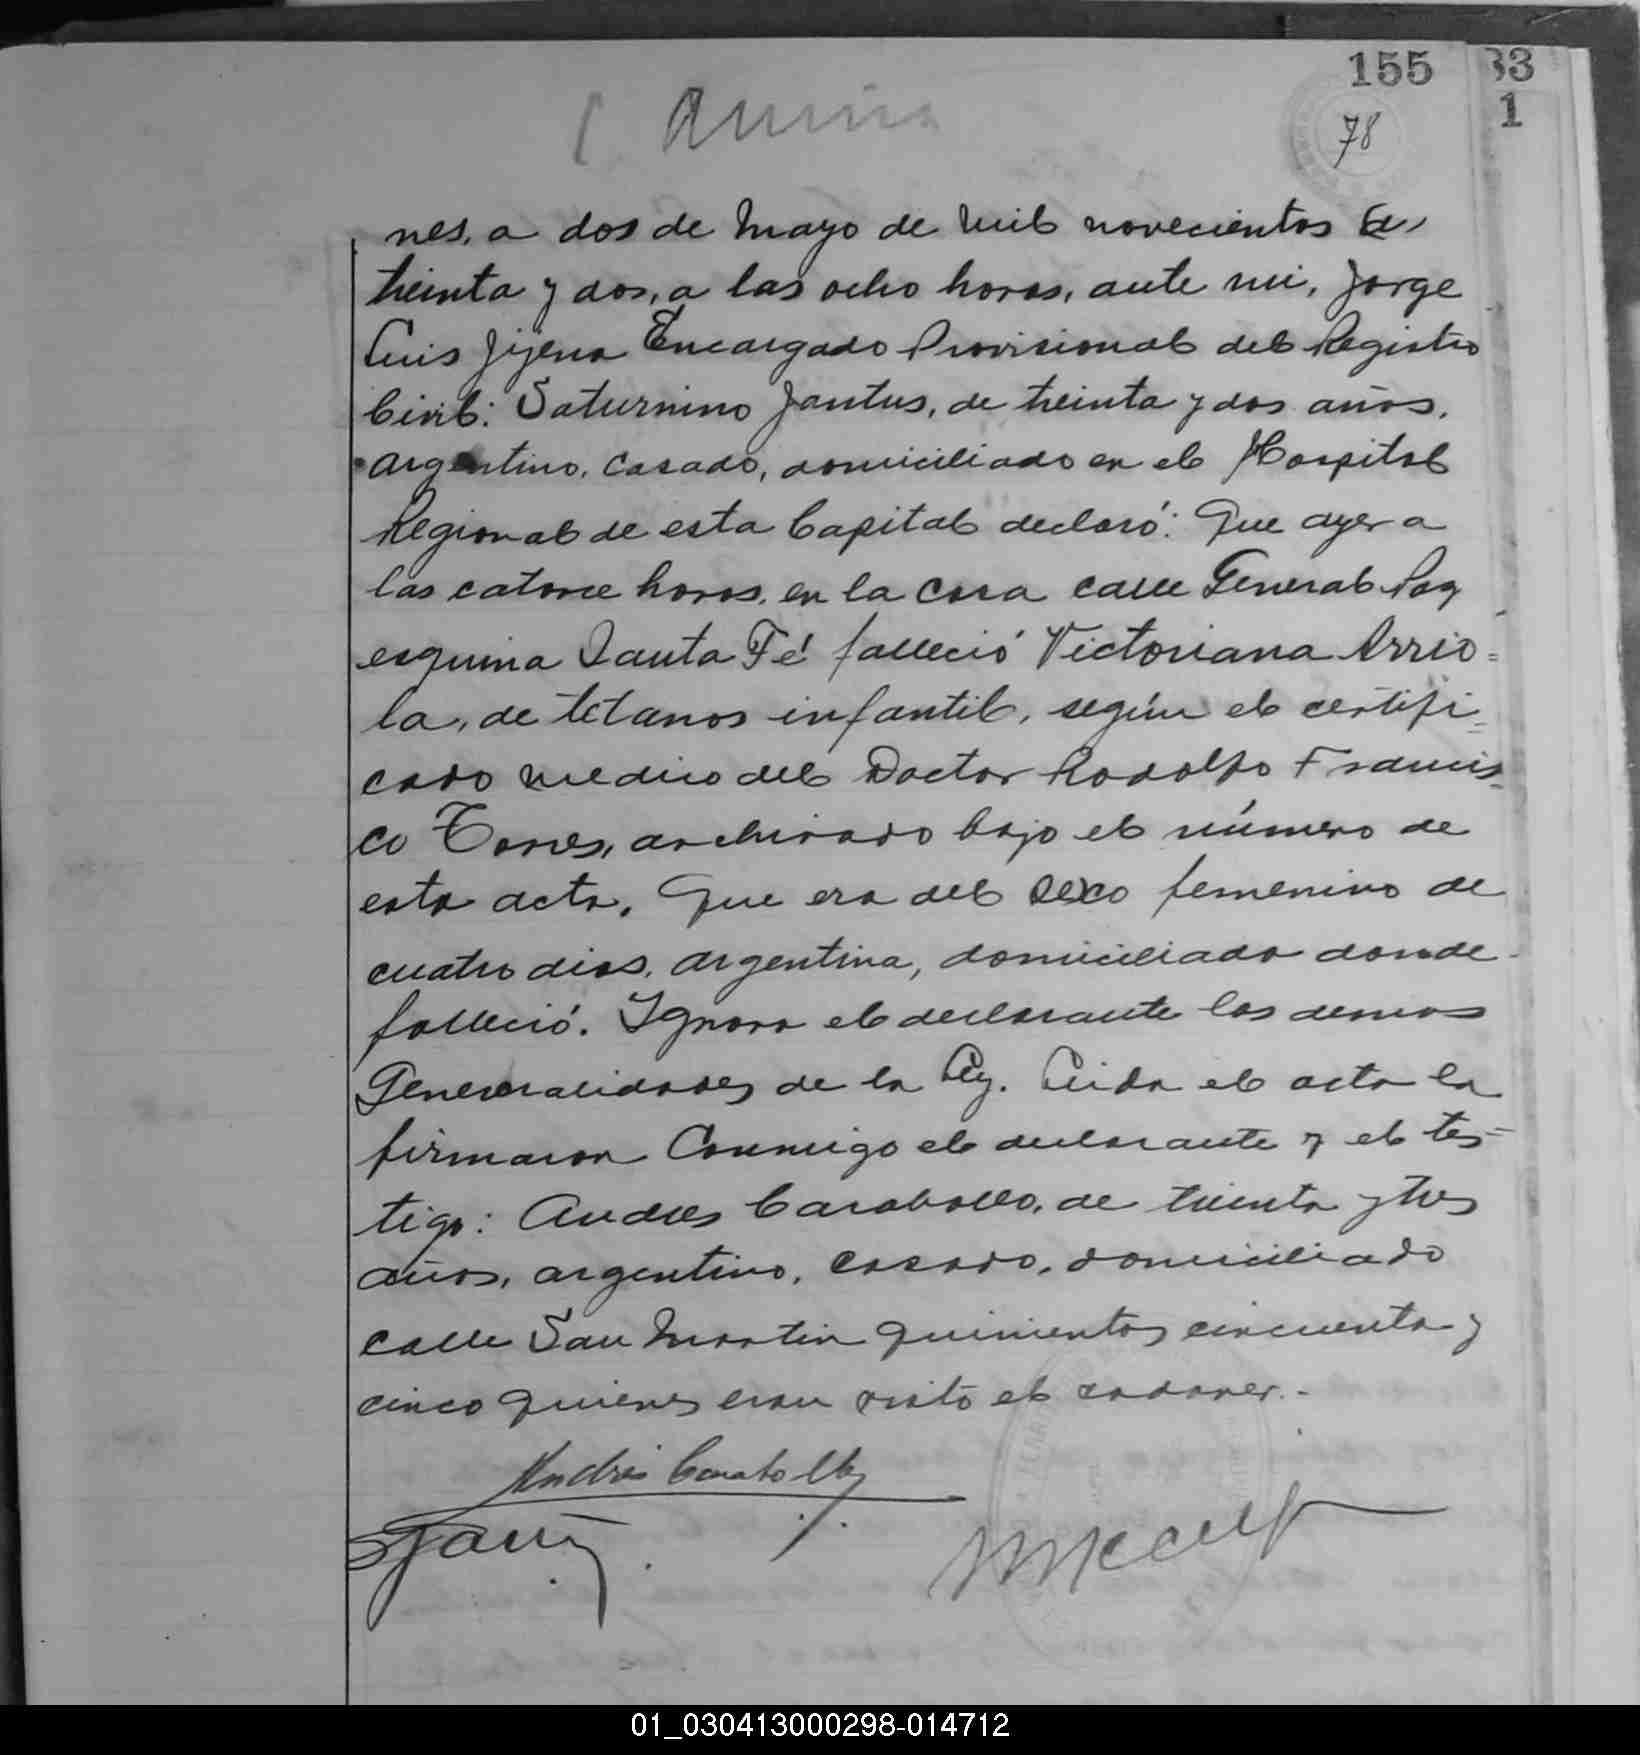 155
33
1
78
nes, a dos de Mayo de mil novecientos
treinta y dos, a las ocho horas, ante mi, Jorge
Luis Jijena Encargado Provisional del Registro
Civil: Saturnino Jantus, de treinta y dos años,
argentino, casado, domiciliado en el Hospital
Regional de esta Capital declaró: Que ayer a
las catorce horas, en la casa calle General Paz
esquina Santa Fé falleció Victoriana Arrio=
la, de tétanos infantil, según el certifi=
cado medico del Doctor Rodolfo Francis=
co Torres, archivado bajo el número de
esta acta. Que era del sexo femenino de
cuatro dias, argentina, domiciliada donde
falleció. Ignora el declarante las demas
Generalidades de la Ley. Leida el acta la
firmaron Conmigo el declarante y el tes-
tigo: Andres Caraballo, de treinta y tres
años, argentino, casado, domiciliado
calle San Martin quinientos cincuenta y
cinco quienes visto el cadaver.-
Andrés Caraballo
01_030413000298-014712